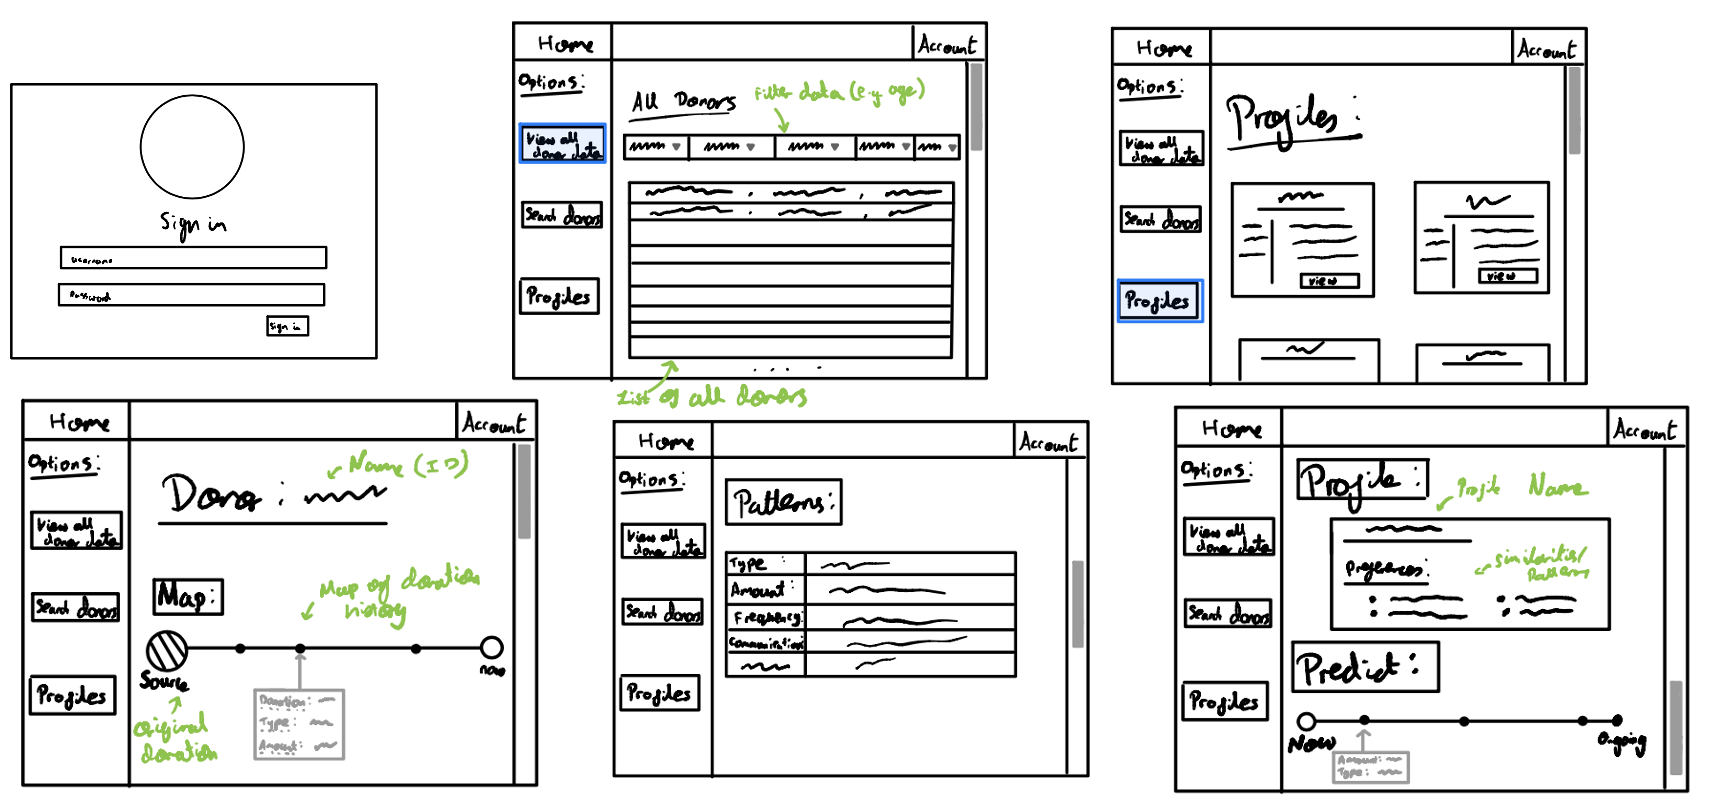 Sign in
Username
Password
Sign in
Home
Account
Options:
View all
donor data
Search donors
Profiles
All Donors
Filter data (e.g age)
List of all donors
Home
Account
Options:
View all
donor data
Search donors
Profiles
Profiles:
view
view
Home
Account
Options:
View all
donor data
Search donors
Profiles
Donor:
Name (ID)
Map:
Map of donation
history
Source
now
Original
donation
Donation:
Type:
Amount:
Home
Account
Options:
View all
donor data
Search donors
Profiles
Patterns:
Type:
Amount:
Frequency:
Communication:
Home
Account
Options:
View all
donor data
Search donors
Profiles
Profile:
Profile Name
Preferences:
Similarities/
Patterns
Predict:
Now
Ongoing
Amount:
Type: